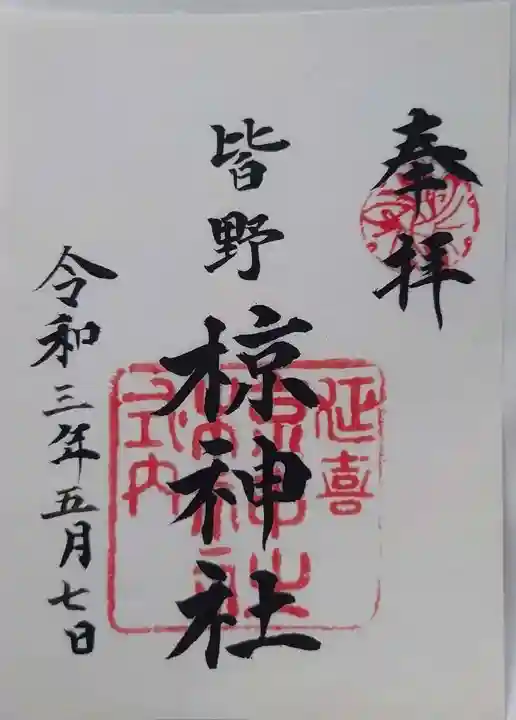 奉拝
皆野
椋神社
延喜
式内
令和三年五月七日